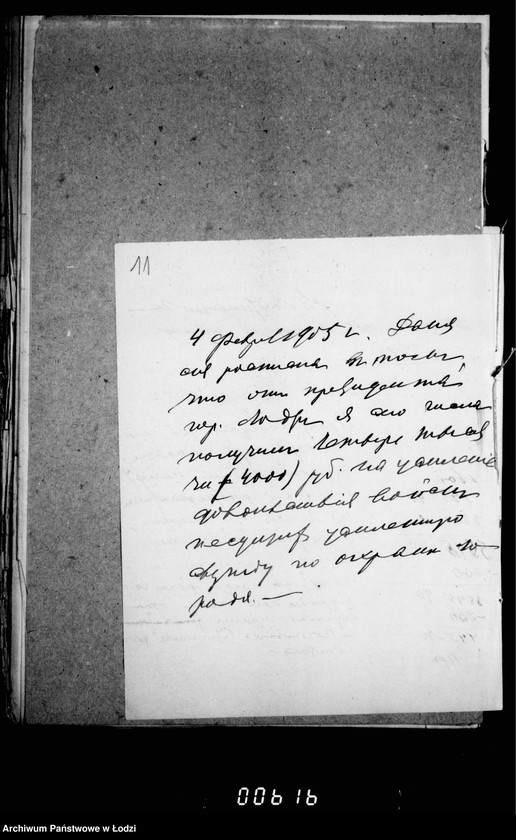 11
4 Февр. 1905 г. Дана
сия росписка в том,
что от президента
гор. Лодзи я сего числа
получил четыре тыся
чи (4000) руб. на усиление
довольствия войск
несущих усиленную
службу по охране го
рода. —
00616
Archiwum Państwowe w Łodzi